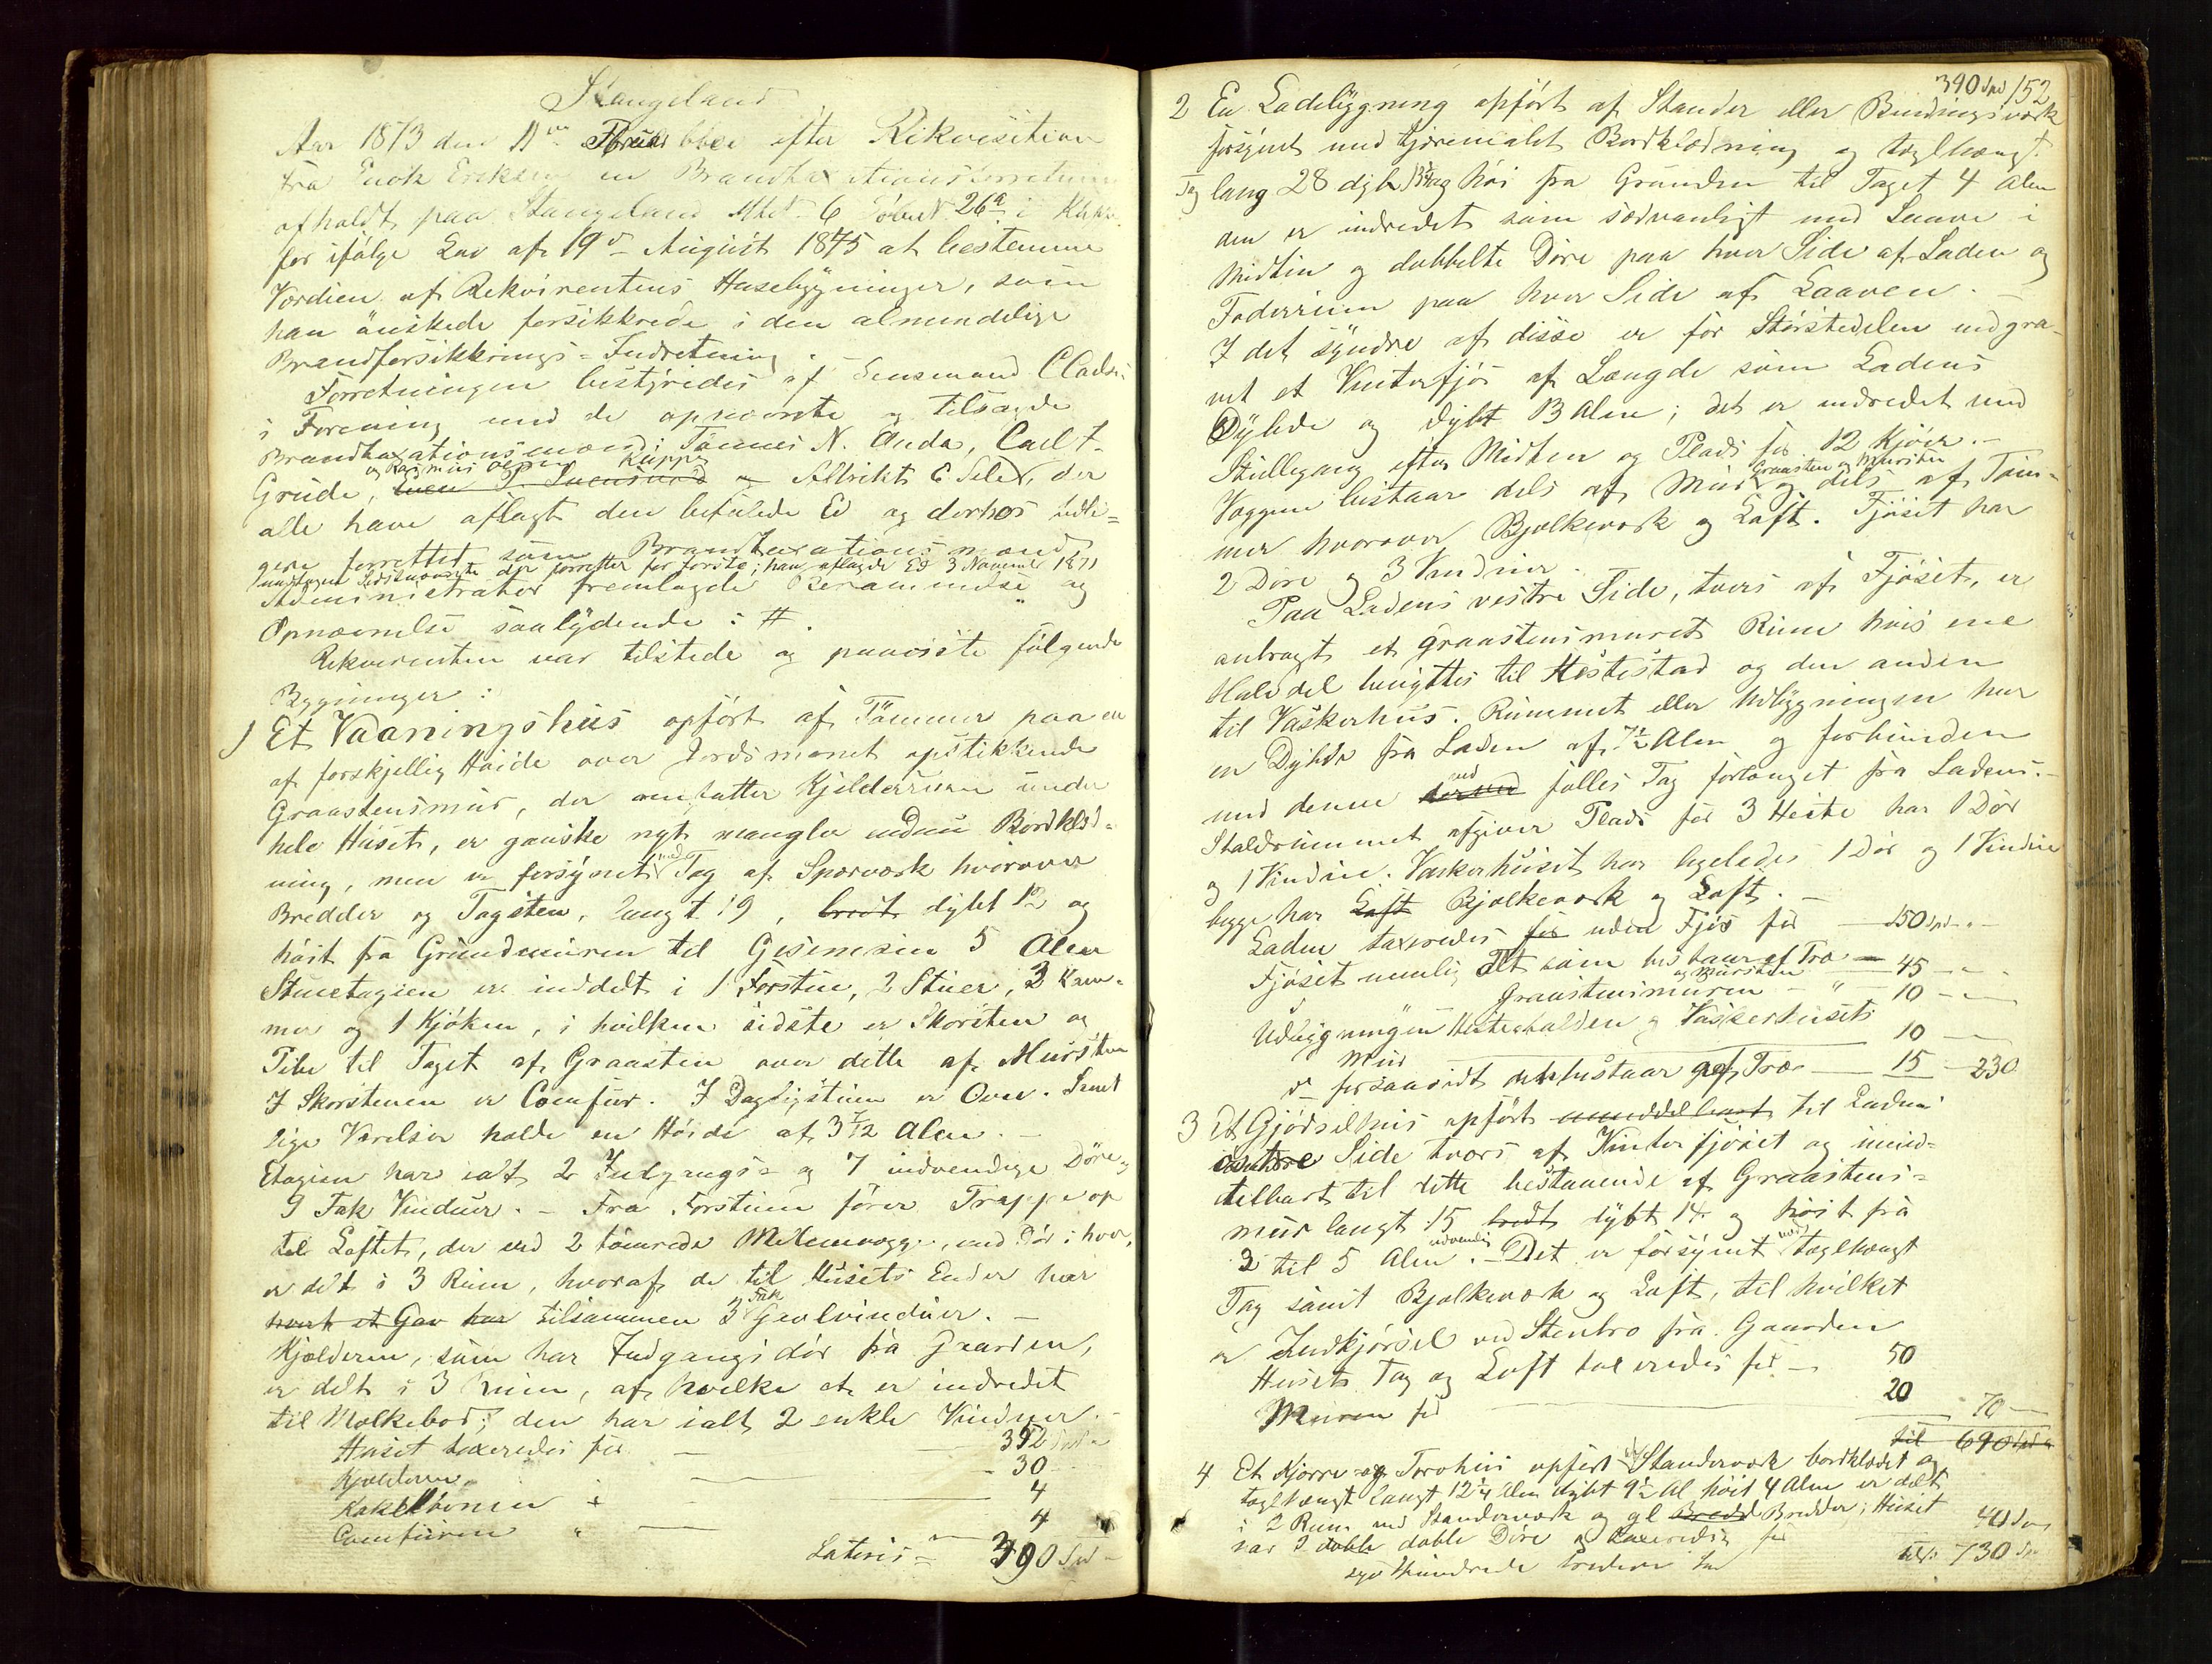 Stangeland
Aar 1873 den 11te efter Rekvisition
fra Enok Eriksen en Brandtaxationsforretning
afholdt paa Stangeland Mtr. 6 Löbent 26a i
for ifölge Lov af 19de August 1845 at bestemme
Værdien af Rekvirentens Husebygninger, som
han önskede forsikkrede i den almindelige
Brandforsikkrings-Indretning.
Forretningen bestyredes af Lensmand
i Forening med de opnævnte og tilsagde
Brandtaxationsmænd: Tönnes N. Auda, Carl T.
og Rasmus Olsen Kleppe
Grude, Even og Albrikt E Sele, der
alle have aflagt den befalede Ed og derhos tidli-
gere forrettet som Brandtaxationsmænd
undtagen Sidstnævnte der forretter for förste; han aflagde Ed 3 November 1871
Administrator fremlagde Berammelse og
Opnævnelse saalydende: #.
Rekvirenten var tilstede og paaviste fölgende
Bygninger:
1 Et Vaaningshus opfört af Tömmer paa en
af forskjellig Höide over Jordsmonet opstikkende
Graastensmur, der omfatter Kjelderrum under
hele Huset, er ganske nyt mangler endnu Bordklæd-
ning, men er forsynet med Tag af Sparværk hvorover
Bredder og Tagsten, langt 19, bredt dybt 12 og
höit fra Grundmuren til Gesemsen 5 Alen
Stueetagien er inddelt i 1 Forstue, 2 Stuer, 3 Kam-
mer og 1 Kjöken, i hvilken sidste er Skorsten og
Pibe til Taget af Graasten over dette af Mursten
I Skorstenen er Comfur. I Dagligstuen er Oven. Samt
lige Værelser holde en Höide af 3 1/2 Alen. -
Etagien har ialt 2 Indgangs- og 7 indvendige Döre og
9 Fak Vinduer. - Fra Forstuen förer Trappe op
til Loftet, der ved 2 tömrede Mellemvægge, med Dör i hver,
er delt i 3 Rum, hvoraf de til Husets Ender har
hvert et Gav har tilsammen 3 Fak Gevlvinduer. -
Kjælderen, som har Indgangsdör fra Gaarden,
er delt i 3 Rum, af hvilke et er indredet
til Melkebod; den har ialt 2 enkle Vinduer. -
Huset taxeredes for - 352 Spd -
Kjælderen - 30
Kakkelovnen - 4
Comfuren " - 4
Lateris = 390 Spd -
390 Spd 152
2 En Ladebygning opfört af Stander eller Bindingsværk
forsynet med tjæremalet Bordklædning og teglhængt
Tag lang 28 dyb 13 1/4 og höi fra Grunden til Taget 4 Alen
den er indredet som sædvanligt med Laave i
Midten og dobbelte Döre paa hver Side af Laden og
Foderrum paa hver Side af Laaven. -
I det syndre af disse er for Störstedelen indgra-
vet et Vinterfjös af Længde som Ladens
Dybde og dybt 13 Alen; det er indredet med
Stillegang efter Midten og Plads for 12 Kjöer. -
Væggene bestaar dels af Mur Graasten og Mursten og dels af Töm-
mer hvorover Bjelkeværk og Loft. Fjöset har
2 Döre og 3 Vinduer.
Paa Ladens vestre Side, tvers af Fjöset, er
anbragt et graastensmuret Rum hvis ene
Halvdel benyttes til Hestestad og den anden
til Vaskerhus. Rummet eller Udbygningen har
en Dybde fra Laden af 7 1/2 Alen og forbunden
med denne ved fælles Tag forlænget fra Ladens. -
Staldrummet afgiver Plads for 3 Heste har 1 Dör
og 1 Vindue. Vaskerhuset har ligeledes 1 Dör og 1 Vindue
begge har Loft Bjelkeværk og Loft. -
Laden taxeredes for uden Fjös for - 150 Spd - " -
Fjöset nemlig Alt som bestaar af Træ - 45 - " -
Graastensmuren og Mursten - " - 10 - " -
Udbygningen Hestestalden og Vaskerhusets
Mur 10 -
do forsaavidt det bestaar af Træ - 15 - 230
3 Et Gjödselhus opfört umiddelbart til Ladens
östre Side tvers af Vinterfjöset og umid-
delbart til dette bestaaende af Graastens-
mur langt 15 bredt dybt 14 og höit fra
3 til 5 Alen udvendig. - Det er forsynet med teglhængt
Tag samt Bjelkeværk og Loft, til hvilket
er Indkjörsel ved Stenbro fra Gaarden
Husets Tag og Loft taxeredes for - 50
Muren for 20 70 -
til 690 Spd
4 Et Kjærre og Torvhus opfört af Standerværk bordklædet og
teglhængt langt 12 1/4 Alen dybt 9 1/2 Al höit 4 Alen er delt
i 2 Rum med Standerværk og gl Bredd Bredder; Huset
har 3 doble doble Döre og taxeredes for 40 Spd
tils. 730 Spd
syv Hundrede tredive Spd